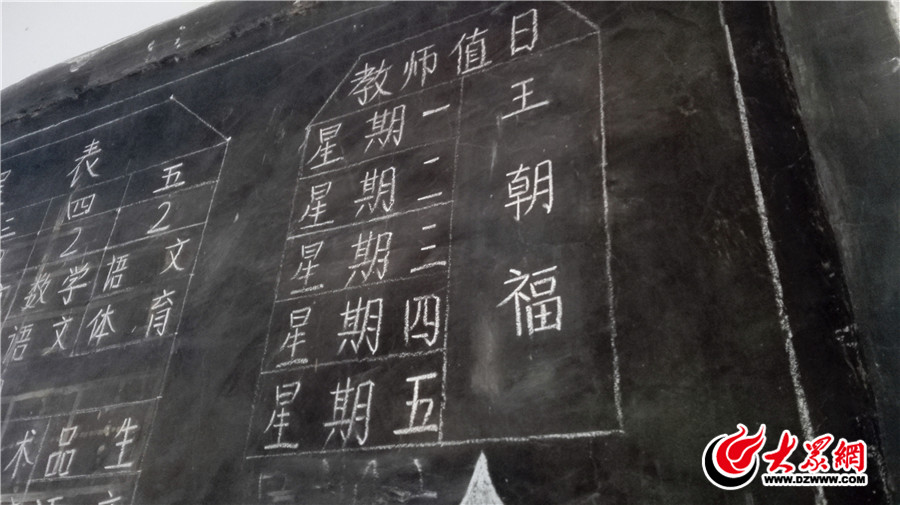 表
四 五
2 2
数学 语文
语文 体育
术 品生
教师值日
星期一
星期二
星期三
星期四
星期五
王朝福
大眾網
WWW.DZWWW.COM